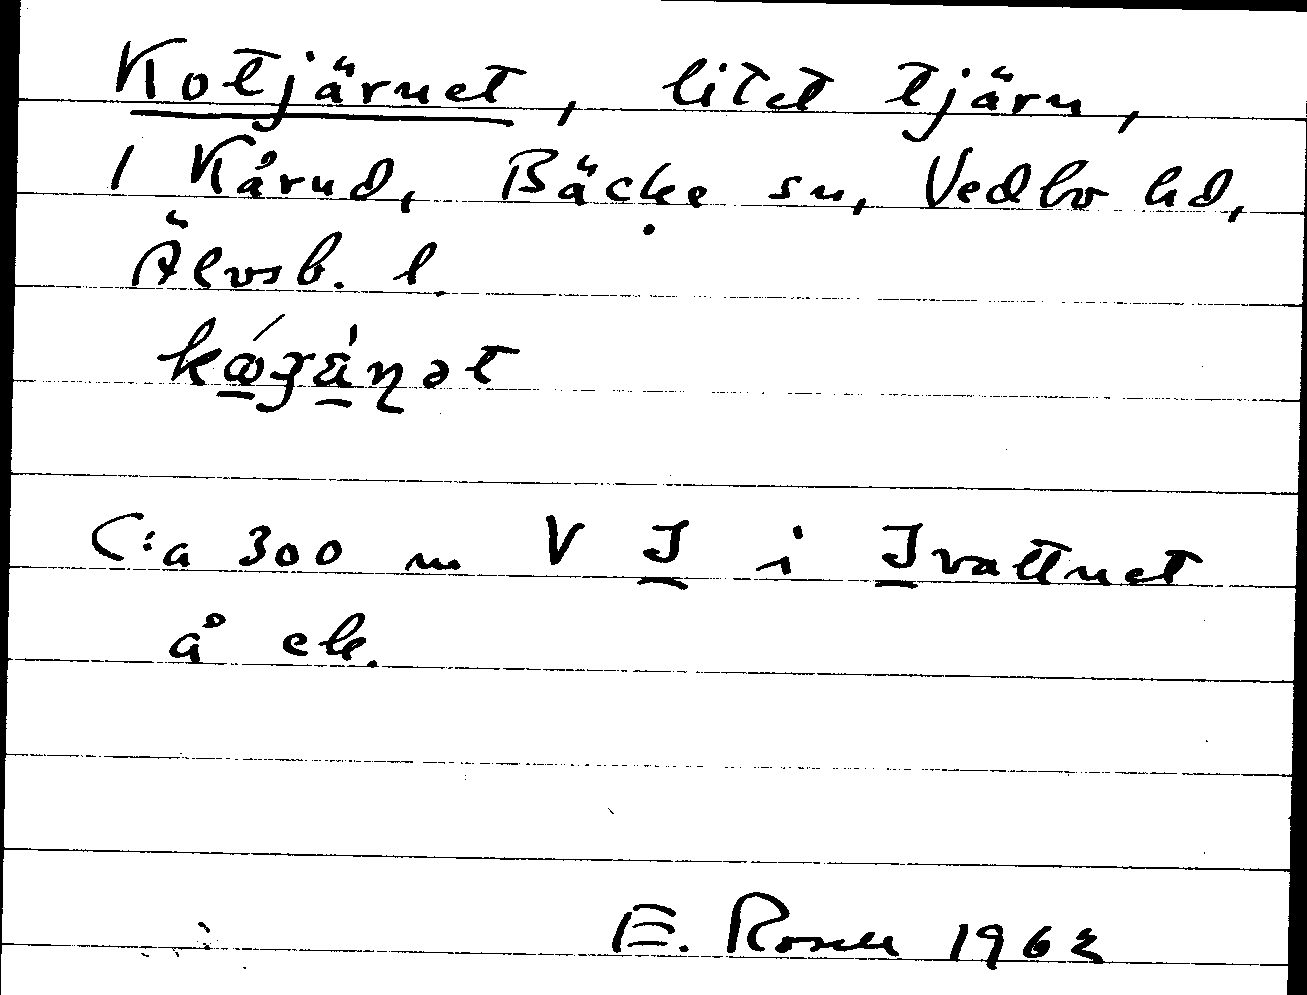 Kotjärnet, litet tjärn,
1 Kårud, Bäcke sn, Vedbo hd,
Älvsb. l.
C:a 300 m V I i Ivattnet
å ek.
E. Rosell 1963